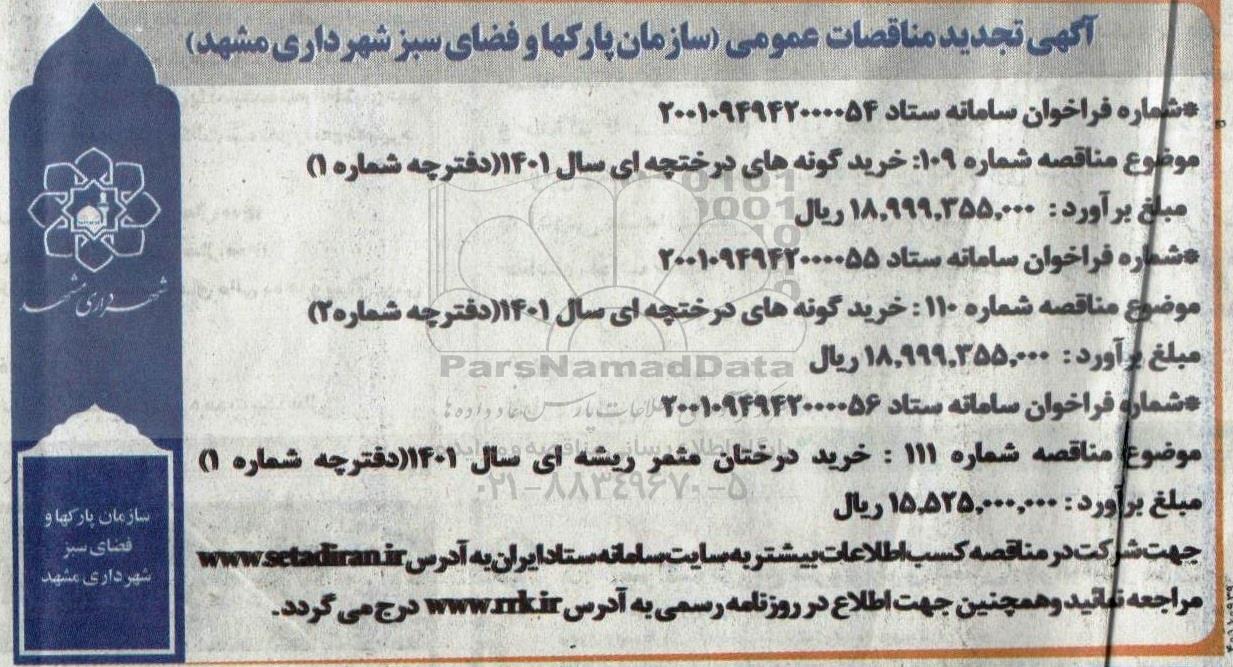 آگهی تجدید مناقصات عمومی (سازمان پارکها و فضای سبز شهرداری مشهد)
*شماره فراخوان سامانه ستاد ۲۰۰۱۰۹۴۹۴۲۰۰۰۰۵۴
موضوع مناقصه شماره ۱۰۹: خرید گونه های درختچه ای سال ۱۴۰۱(دفترچه شماره ۱)
مبلغ برآورد : ۱۸,۹۹۹,۳۵۵,۰۰۰ ریال
*شماره فراخوان سامانه ستاد ۲۰۰۱۰۹۴۹۴۲۰۰۰۰۵۵
موضوع مناقصه شماره ۱۱۰ : خرید گونه های درختچه ای سال ۱۴۰۱(دفترچه شماره۲)
مبلغ برآورد : ۱۸,۹۹۹,۳۵۵,۰۰۰ ریال
*شماره فراخوان سامانه ستاد ۲۰۰۱۰۹۴۹۴۲۰۰۰۰۵۶
موضوع مناقصه شماره ۱۱۱ : خرید درختان مثمر ریشه ای سال ۱۴۰۱(دفترچه شماره ۱)
مبلغ برآورد : ۱۵,۵۲۵,۰۰۰,۰۰۰ ریال
جهت شرکت در مناقصه کسب اطلاعات بیشتر به سایت سامانه ستاد ایران به آدرس www.setadiran.ir
مراجعه نمائید و همچنین جهت اطلاع در روزنامه رسمی به آدرس www.rrk.ir درج می گردد.
شهرداری مشهد
سازمان پارکها و
فضای سبز
شهرداری مشهد
ParsNamadData
۰۲۱-۸۸۳۴۹۶۷۰-۵